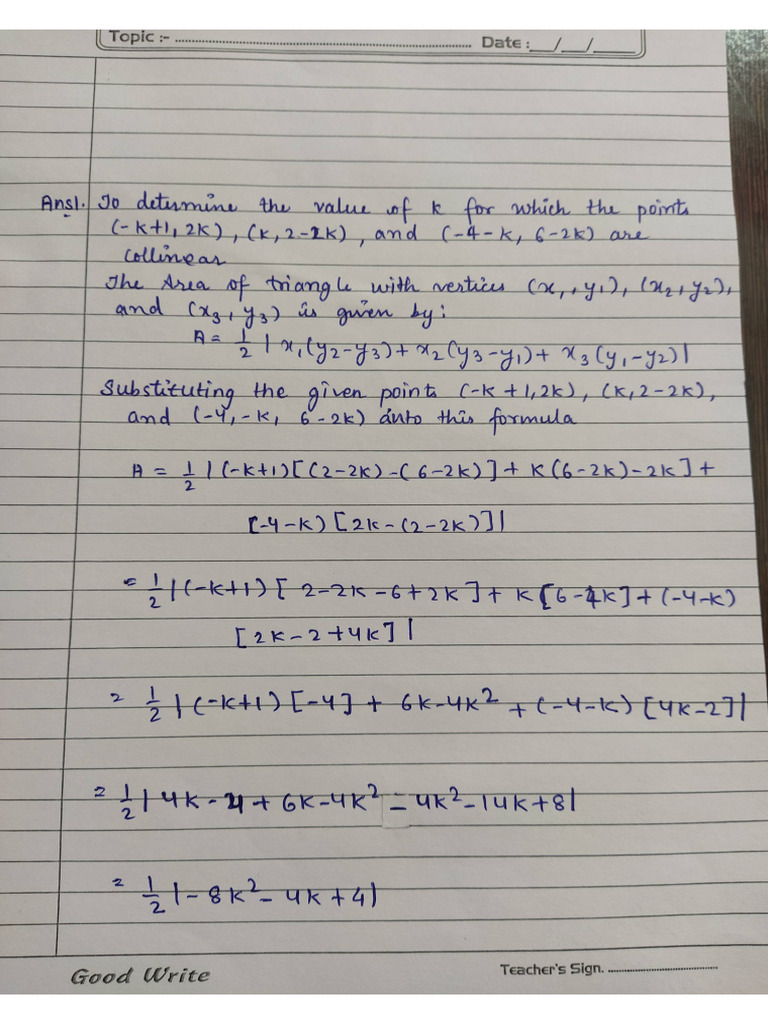 Topic :- ............ Date :__/__/____
Ans1. To determine the value of k for which the points
(-k+1, 2k), (k, 2-2k), and (-4-k, 6-2k) are
collinear
The Area of triangle with vertices (x₁, y₁), (x₂, y₂),
and (x₃, y₃) is given by:
A = 1/2 | x₁(y₂-y₃) + x₂(y₃-y₁) + x₃(y₁-y₂)|
Substituting the given points (-k+1, 2k), (k, 2-2k),
and (-4, -k, 6-2k) into this formula
A = 1/2 |(-k+1)[(2-2k)-(6-2k)] + k(6-2k)-2k] +
[-4-k)[2k-(2-2k)]|
= 1/2 |(-k+1)[2-2k-6+2k] + k[6-4k] + (-4-k)
[2k-2+4k]|
= 1/2 |(-k+1)[-4] + 6k-4k² + (-4-k)[4k-2]|
= 1/2 |4k-4+6k-4k²-4k²-14k+8|
= 1/2 |-8k²-4k+4|
Good Write Teacher's Sign. ............